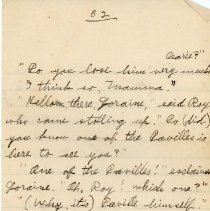 82
Marie?"
"Do you love him very much
"I think so, Mamma."
"Hello, there, Loraine," said Roy
who came stoling up." Do (did)
you know one of the Savilles is
here to see you?"
"One of the Savilles! exclaim
Loraine. Oh, Roy! which one?"
"(Why, it's) Saville himself,"